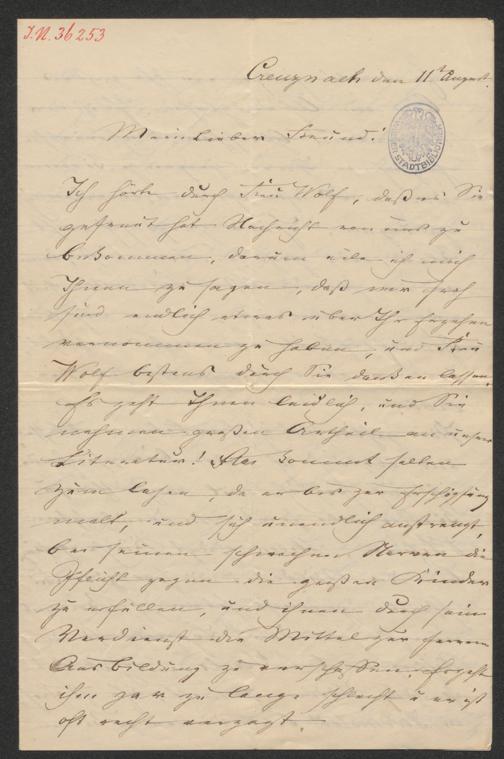 J.N. 36253
Creuznach den 11t August.
STADTBIBLIOTHEK
Mein lieber Freund!
Ich hörte durch Frau Wolf, daß es Sie
gefreut hat Nachricht von uns zu
bekommen, darum eile ich mich
Ihnen zu sagen, daß wir froh
sind endlich etwas über Ihr Ergehen
vernommen zu haben, und Frau
Wolf bestens durch Sie danken lassen.
Es geht Ihnen leidlich, und Sie
nehmen großen Antheil an unserer
Literatur! kommt selten
zum lesen, da er bis zur Erschöpfung
malt, und sich unendlich anstrengt,
bei seinen schwachen Nerven die
Pflicht gegen die großen Kinder
zu erfüllen, und ihnen durch sein
Verdienst die Mittel zur
Ausbildung zu verschaffen. Es geht
ihm gar zu lange schlecht u er ist
oft recht verzagt.